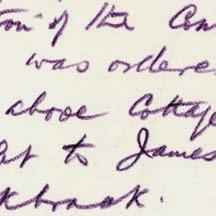 tion of the Con
was ordere
above Cottage
let to James
kbrook.